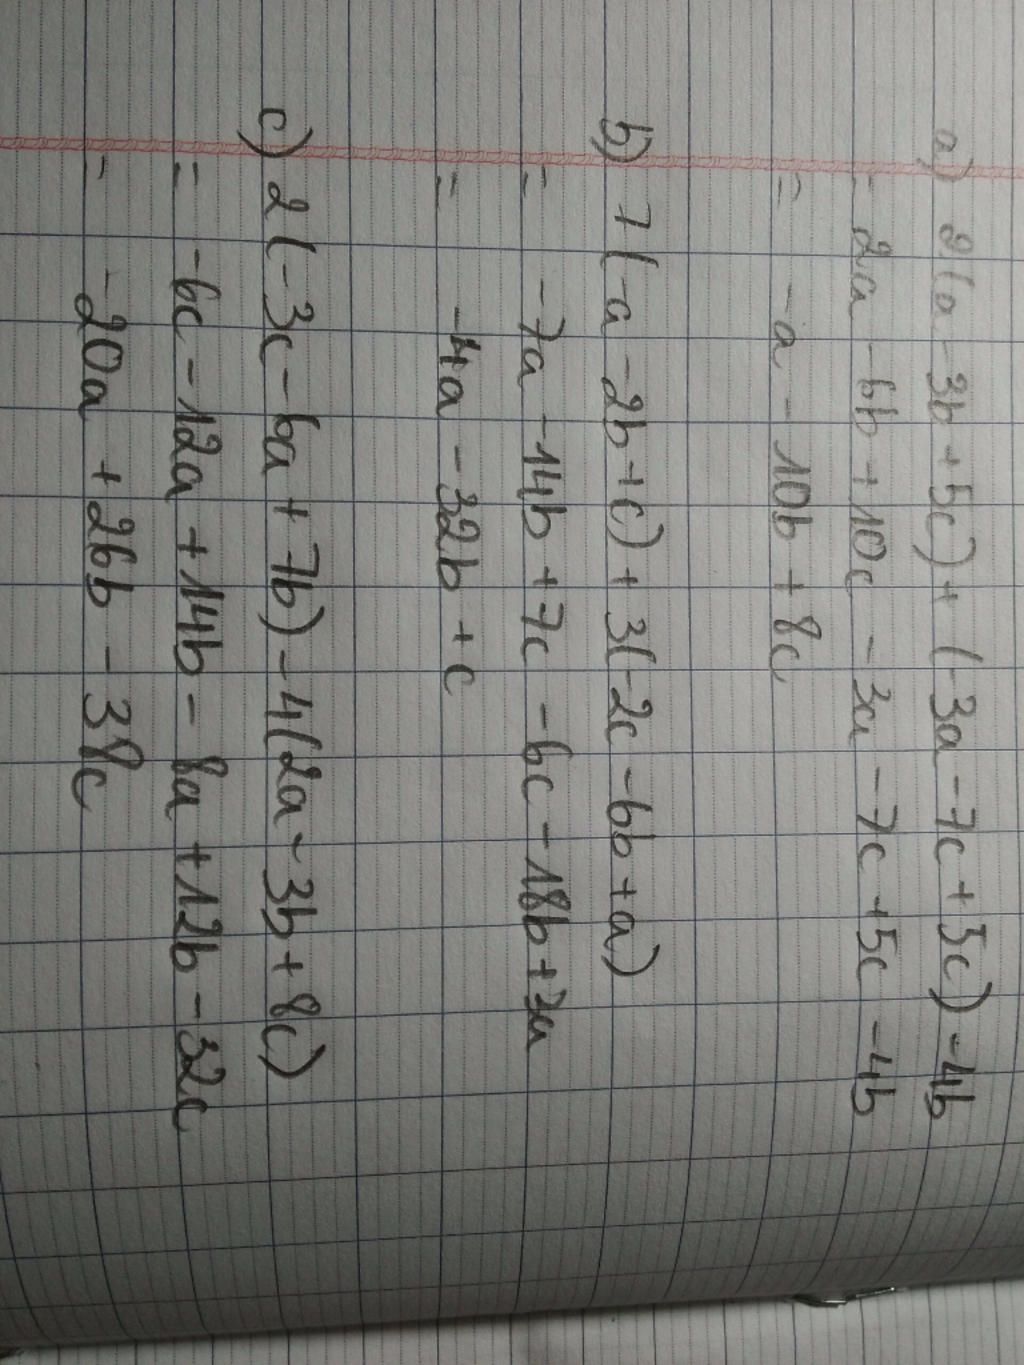 a) 2(a - 3b + 5c) + (-3a - 7c + 5c) - 4b
= 2a - 6b + 10c - 3a - 7c + 5c - 4b
= -a - 10b + 8c
b) 7(-a - 2b + c) + 3(-2c - 6b + a)
= -7a - 14b + 7c - 6c - 18b + 3a
= -4a - 32b + c
c) 2(-3c - 6a + 7b) - 4(2a - 3b + 8c)
= -6c - 12a + 14b - 8a + 12b - 32c
= -20a + 26b - 38c